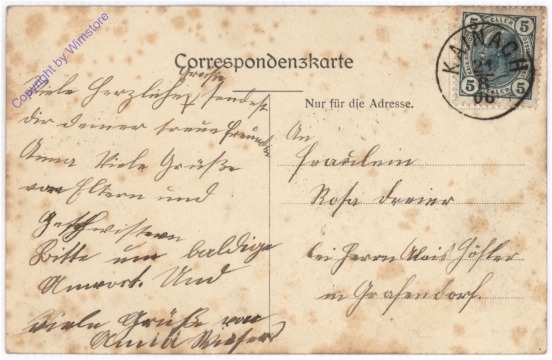 Copyright by Wimstore
5 HELLER 5
5 5
KAINACH
Correspondenzkarte
Nur für die Adresse.
Viele herzliche Grüße sendest
dir deiner treue Freundin
Anna Viele Grüße
von Eltern und
Geschwistern
Bitte um baldige
Antwort. Und
viele Grüße von
Anna
An
Fräulein
Rosa Dreier
bei Herrn Alois
in Grafendorf.